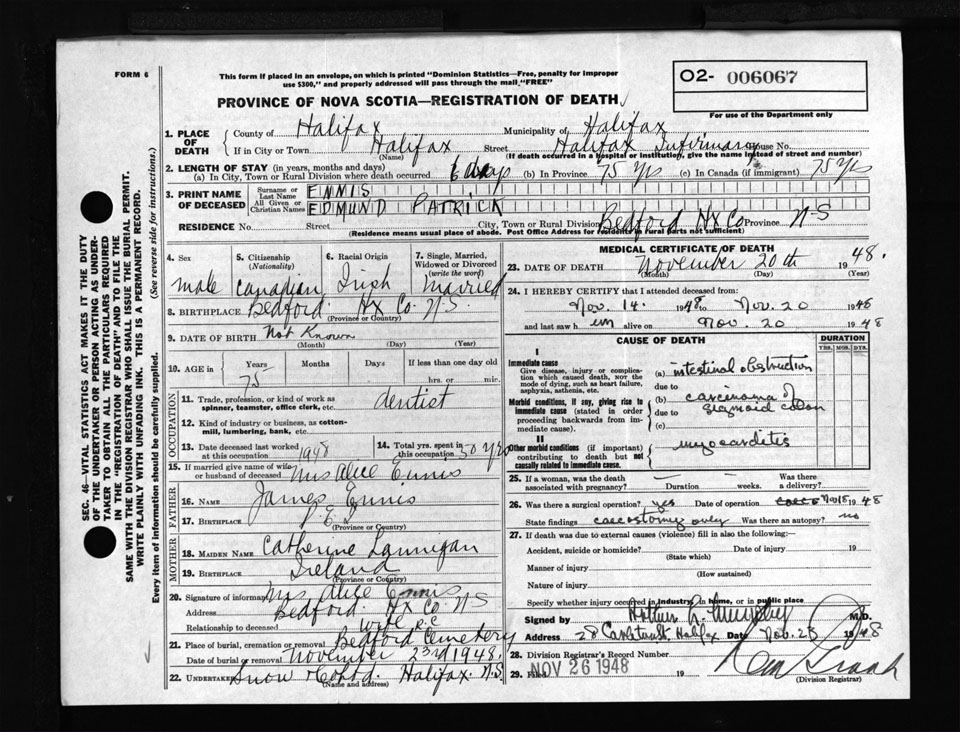 FORM 6
This form if placed in an envelope, on which is printed "Dominion Statistics—Free, penalty for improper
use $300," and properly addressed will pass through the mail "FREE"
O2- 006067
PROVINCE OF NOVA SCOTIA—REGISTRATION OF DEATH
For use of the Department only
1. PLACE OF DEATH
County of Halifax Municipality of Halifax
If in City or Town Halifax Street Halifax Infirmary House No.
(Name) (If death occurred in a hospital or institution, give the name instead of street and number)
2. LENGTH OF STAY (in years, months and days)
(a) In City, Town or Rural Division where death occurred 6 days (b) In Province 75 Yrs (c) In Canada (if immigrant) 75 Yrs
3. PRINT NAME OF DECEASED
Surname or Last Name ENNIS
All Given or Christian Names EDMUND PATRICK
RESIDENCE No. Street City, Town or Rural Division Bedford Hx Co Province N-S
(Residence means usual place of abode. Post Office Address for residents in rural parts not sufficient)
4. Sex male
5. Citizenship (Nationality) Canadian
6. Racial Origin Irish
7. Single, Married, Widowed or Divorced (write the word) Married
8. BIRTHPLACE Bedford. Hx Co. N.S.
(Province or Country)
9. DATE OF BIRTH Not Known
(Month) (Day) (Year)
10. AGE in Years 75 Months Days If less than one day old
hrs. or min.
OCCUPATION
11. Trade, profession, or kind of work as
spinner, teamster, office clerk, etc. dentist
12. Kind of industry or business, as cotton-
mill, lumbering, bank, etc.
13. Date deceased last worked at this occupation 1948
14. Total yrs. spent in this occupation 50 yrs
15. If married give name of wife
or husband of deceased Mrs Alice Ennis
FATHER
16. NAME James Ennis
17. BIRTHPLACE P.E.I
(Province or Country)
MOTHER
18. MAIDEN NAME Catherine Lannigan
19. BIRTHPLACE Ireland
(Province or Country)
20. Signature of informant Mrs Alice Ennis
Address Bedford. Hx Co. NS
Relationship to deceased wife R.C
21. Place of burial, cremation or removal Bedford Cemetery
Date of burial or removal November 23rd 1948.
22. Undertaker Snow & Co Ltd. Halifax. N.S.
(Name and address)
MEDICAL CERTIFICATE OF DEATH
23. DATE OF DEATH November 20th 1948.
(Month) (Day) (Year)
24. I HEREBY CERTIFY that I attended deceased from:
Nov. 14. 1948 to Nov. 20 1948
and last saw him alive on Nov. 20 1948
CAUSE OF DEATH
DURATION
YRS. MOS. DYS.
I
Immediate cause
Give disease, injury or complica-
tion which caused death, not the
mode of dying, such as heart failure,
asphyxia, asthenia, etc.
(a) intestinal obstruction
due to
Morbid conditions, if any, giving rise to
immediate cause (stated in order
proceeding backwards from im-
mediate cause).
(b) carcinoma of
due to sigmoid colon
(c)
II
Other morbid conditions (if important)
contributing to death but not
causally related to immediate cause.
myocarditis
25. If a woman, was the death
associated with pregnancy? Duration weeks. Was there a delivery?
26. Was there a surgical operation? yes Date of operation Nov 15 1948
State findings caecostomy only Was there an autopsy? no
27. If death was due to external causes (violence) fill in also the following:—
Accident, suicide or homicide? Date of injury 19
(State which)
Manner of injury
(How sustained)
Nature of injury
Specify whether injury occurred in industry, in home, or in public place
Signed by Arthur R. Murphy M.D.
Address 28 Halifax Date Nov. 23 1948
28. Division Registrar's Record Number
29. Filed NOV 26 1948 19
(Division Registrar)
SEC. 46—VITAL STATISTICS ACT MAKES IT THE DUTY
OF THE UNDERTAKER OR PERSON ACTING AS UNDER-
TAKER TO OBTAIN ALL THE PARTICULARS REQUIRED
IN THE "REGISTRATION OF DEATH" AND TO FILE THE
SAME WITH THE DIVISION REGISTRAR WHO SHALL ISSUE THE BURIAL PERMIT.
WRITE PLAINLY WITH UNFADING INK. THIS IS A PERMANENT RECORD.
Every item of information should be carefully supplied. (See reverse side for instructions.)